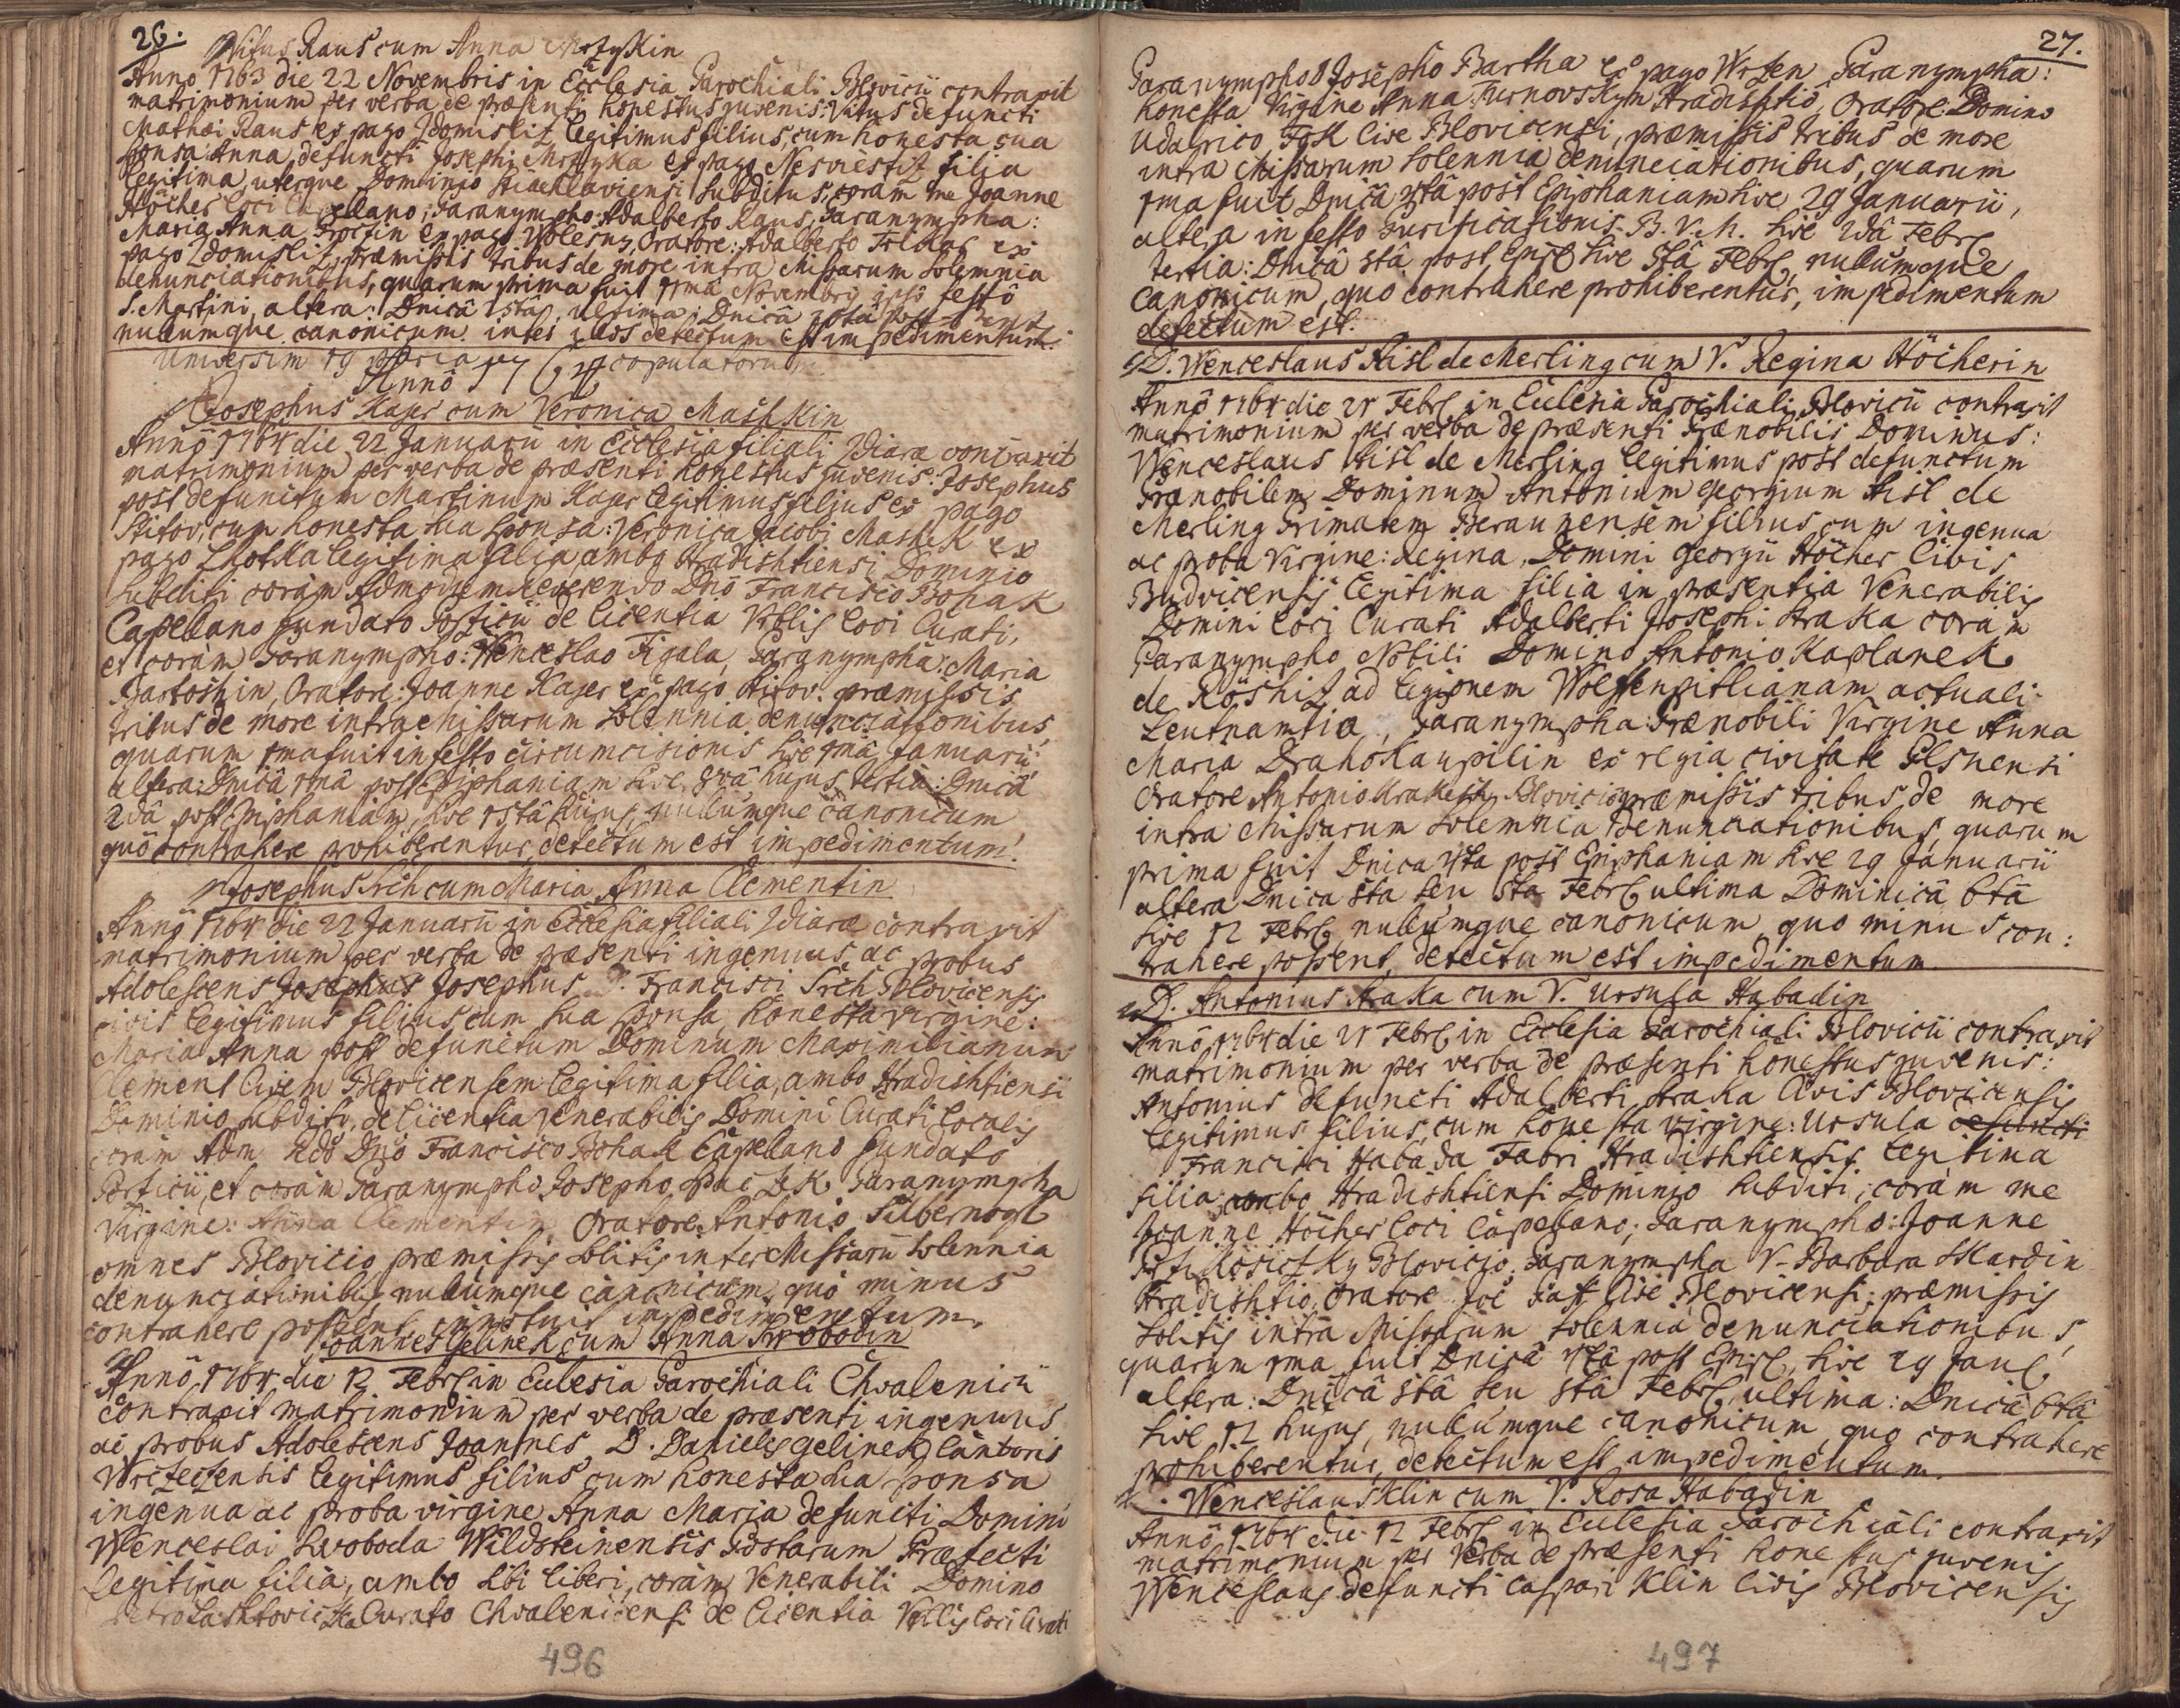 26.
Vitus Raus cum Anna
Anno 1763 die 22 Novembris in Ecclesia Parochiali Blovicii contraxit
matrimonium per verba de præsenti honestus juvenis: Vitus defuncti
Mathæi Raus ex pago Zdomisliz legitimus filius, cum honesta sua
sponsa: Anna, defuncti Josephi Mrztyka ex pago Nesviestiz filia
legitima, uterque Dominio subditus, coram me Joanne
Höcher loci Capellano; Paranympho: Adalberto Raus, Paranympha:
Maria Anna ex pago Oratore: Adalberto ex
pago Zdomisliz, præmissis tribus de more intra Missarum solemnia
denunciationibus, quarum prima fuit Novembris ipsô festô
S. Martini, altera: Dnicâ ultima: Dnicâ post
nullumque canonicum inter illos detectum est impedimentum.
Universim 19 paria copulatorum
Annô
Josephus Kajer cum Veronica Mashkin
Annô 1764 die 22 Januarii in Ecclesia filiali Zdiaræ contraxit
matrimonium per verba de præsenti honestus juvenis: Josephus
post defunctum Martinum Kajer legitimus filius ex pago
Stitov, cum honesta sua sponsa: Veronica Jacobi Mashek ex
pago Lhotka legitima filia, ambo Hradishtiensi Dominio
subditi coràm Admodum Reverendo Dnô Francisco Bohak
Capellano fundato Porficii de licentia Vrblis loci Curati,
et coràm Paranympho: Wenceslao Figala, Paranympha: Maria
Bartoshin, Oratore: Joanne Kajer ex pago Stitov. præmissis
tribus de more intra Missarum solennia denunciationibus,
quarum 1ma fuit in festo Circumcisionis sive 1mâ Januarii
altera: Dnicâ 1mâ post Epiphaniam sive 8vâ hujus, tertia: Dnicâ
2dâ post Epiphaniam, sive 15tâ hujus, nullumque canonicum
quô contrahere prohiberentur, detectum est impedimentum.
Josephus Srch cum Maria Anna Clementin
Annô 1764 die 22 Januarii in Ecclesia filiali Zdiaræ contraxit
matrimonium per verba de præsenti ingenuus ac probus
Adolescens Josephus Josephus D. Francisci Srch Blovicensis
civis legitimus filius cum sua sponsa, honesta virgine:
Maria Anna post defunctum Dominum Maximilianum
Clement civem Blovicensem legitima filia, ambo Hradishtiensi
Dominio subditi, de licentia Venerabilis Domini Curati localis
coràm Adm Rdô Dnô Francisco Bohak Capellano fundato
Porficii, et coràm Paranympho Josepho Paranympha
Virgine: Anna Clementin Oratore Antonio Silbernogl
omnes Blovicio præmissis solitis inter Missarũ solennia
denunciationibus nullumque canonicum, quô minus
contrahere possent, innotuit impedimentum.
Joannes Gelinek cum Anna Svobodin
Annô 1764 die 12 Febr in Eclesia Parochiali Chvalenicii
contraxit matrimonium per verba de præsenti ingenuus
ac probus Adolescens Joannes D. Danielis Gelinek Cantoris
legitimus filius cum honesta sua sponsa
ingenua ac proba virgine Anna Maria defuncti Domini
Wenceslai Svoboda Wildsteinensis Postarum Præfecti
legitima filia, ambo sibi liberi, coràm Venerabili Domino
Petro Curato Chvalenicensi de licentia Vrblis loci Curati
496
27.
Paranympho Josepho Bartha ex pago Paranympha:
honesta Virgine Anna Turnovskym Hradishtio, Oratore: Domino
Udalrico cive Blovicensi, præmissis tribus de more
intra Missarum solennia denunciationibus, quarum
1ma fuit Dnicâ 4tâ post Epiphaniam sive 29 Januarii,
altera in festo Purificationis B.V.M. sive 2dâ Febr
tertia: Dnicâ 5tâ post Epiph sive 5tâ Febr, nullumque
canonicum, quo contrahere prohiberentur, impedimentum
detectum est.
D. Wenceslaus Aisl de Merling cum V. Regina Höcherin
Annô 1764 die 21 Febr in Ecclesia Parochiali Blovicii contraxit
matrimonium per verba de præsenti Prænobilis Dominus:
Wenceslaus Aisl de Merling legitimus post defunctum
Prænobilem Dominum Antonium Georgium Aisl de
Merling Primatem Beraunensem filius cum ingenua
ac proba Virgine: Regina, Domini Georgii Höcher Civis
Budvicensis legitima filia in præsentia Venerabilis
Domini loci Curati Adalberti Josephi Straka coràm
Paranympho Nobili Domino Antonio Kaplanek
de Röshiz ad legionem actuali
Leutnantio, Paranympha Prænobili Virgine Anna
Maria Drahokaupilin ex regia civitate Pilsnensi
Oratore Antonio Blovicio, præmissis tribus de more
intra Missarum solemnia denunciationibus, quarum
prima fuit Dnica 4ta post Epiphaniam sive 29 Januarii
altera Dnica 5ta seu 5ta Febr ultima Dominicâ 6tâ
sive 12 Febr, nullumque canonicum quo minus con:
trahere possent, detectum est impedimentum
D. Antonius Straka cum V. Ursula Habadin
Annô 1764 die 21 Febr in Ecclesia Parochiali Blovicii contraxit
matrimonium per verba de præsenti honestus juvenis:
Antonius defuncti Adalberti Straka Civis Blovicensis
legitimus filius, cum honesta virgine: Ursula defuncti
Francisci Habada Fabri Hradishtiensis legitima
filia, ambo Hradishtiensi Dominio subditi, coràm me
Joanne Höcher loci Capellano; Paranympho: Joanne
Blovicio, Paranympha V. Barbara Skardin
Hradishtio, Oratore Joe cive Blovicensi: præmissis
solitis intra Missarum solennia denunciationibus,
quarum 1ma fuit Dnicâ 4tâ post Epiph, sive 29 Jan
altera: Dnicâ 5tâ seu 5tâ Febr, ultima: Dnicâ 6tâ
sive 12 hujus, nullumque canonicum, quo contrahere
prohiberentur, detectum est impedimentum.
Wenceslaus Klin cum V. Rosa Habadin
Annô 1764 die 12 Febr in Eclesia Parochiali contraxit
matrimonium per verba de præsenti honestus juvenis
Wenceslaus defuncti Caspari Klin Civis Blovicensis
497